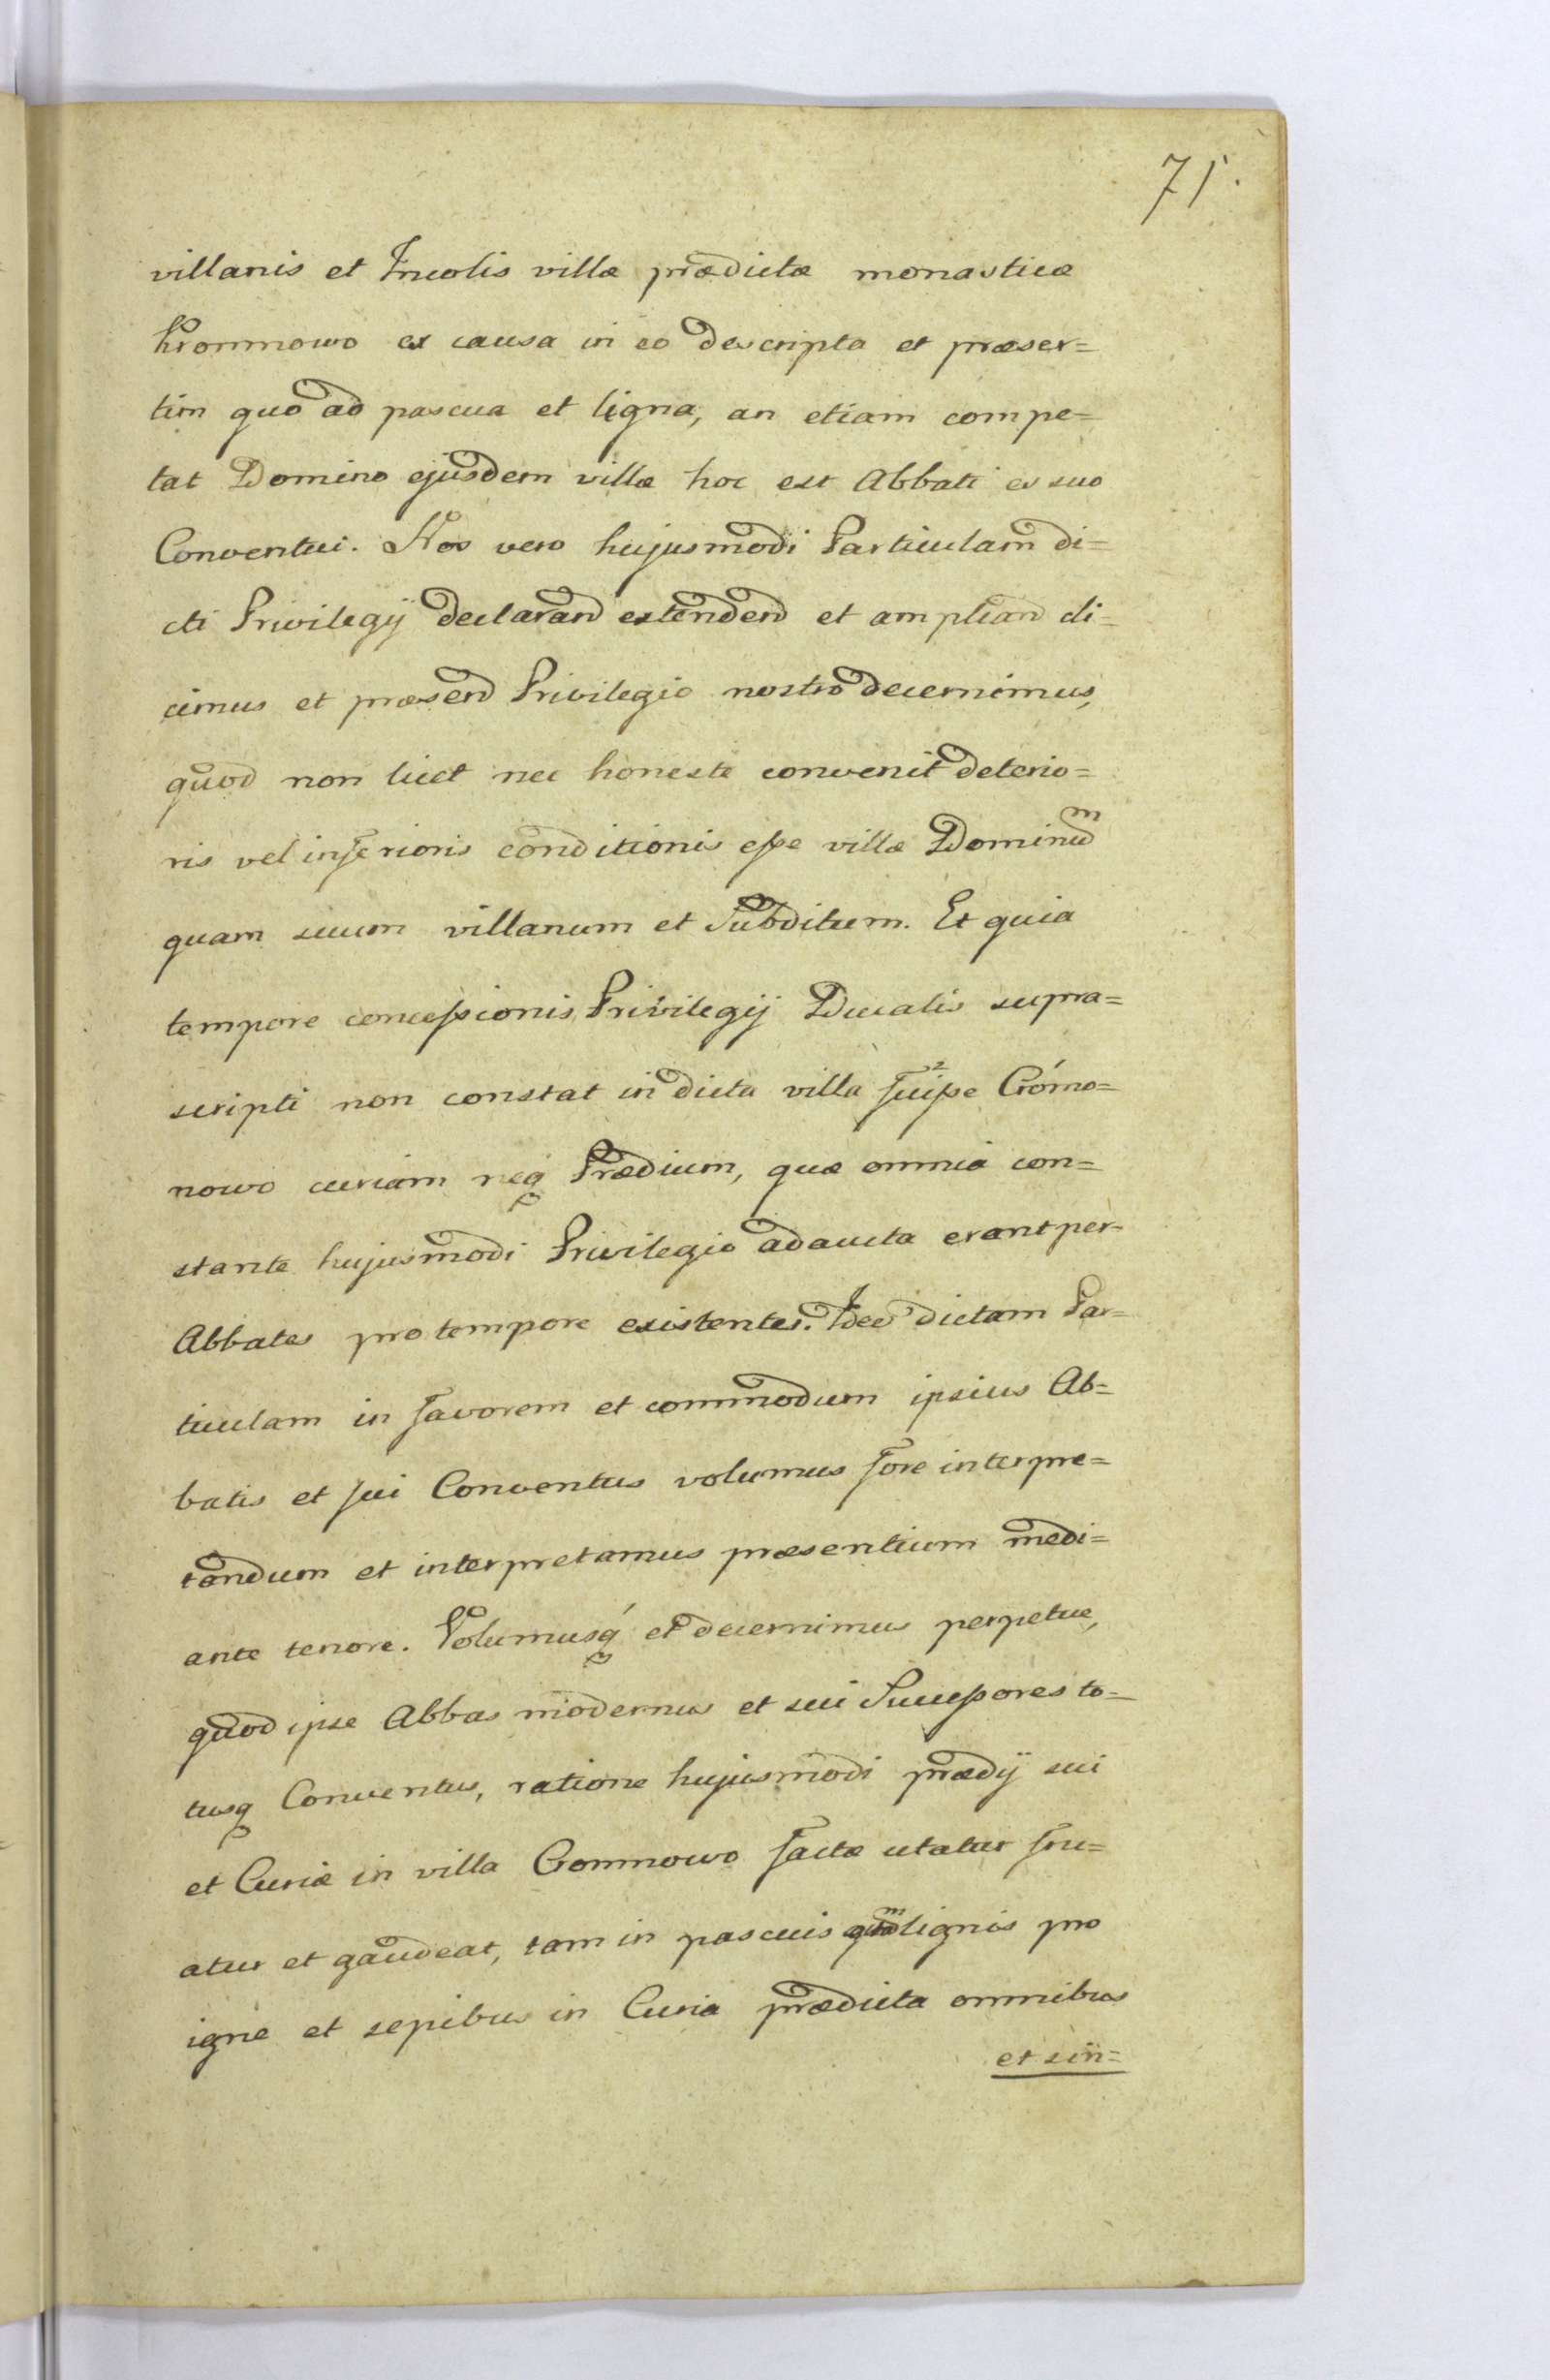 71.
villanis et Incolis villæ prædictæ monasticæ
Krommowo ex causa in eo descripta et præser=
tim quo ad pascua et ligna, an etiam compe=
tat Domino ejusdem villæ hoc est Abbati et suo
Conventui. Nos vero hujusmodi Particulam di=
cti Privilegij declarand extendend et ampliand di=
cimus et præsend Privilegio nostro decernimus,
quod non licet nec honeste convenit deterio=
ris vel inferioris conditionis esse villæ Dominum
quam suum villanum et Subditum. Et quia
tempore concessionis Privilegij Ducalis supra=
scripti non constat in dicta villa fuisse Crómo=
nowo curiam neq Prædium, quæ omnia con=
stante hujusmodi Privilegio adaucta erant per
Abbates pro tempore existentes. Ideo dictam Par=
ticulam in favorem et commodum ipsius Ab=
batis et sui Conventus volumus fore interpre=
tandum et interpretamus præsentium medi=
ante tenore. Volumusq et decernimus perpetue,
quod ipse Abbas modernus et sui Successores to=
tusq Conventus, ratione hujusmodi prædij sui
et Curiæ in villa Cromnowo factæ utatur fru=
atur et gaudeat, tam in pascuis qm lignis pro
igne et sepibus in Curia prædicta omnibus
et sin=